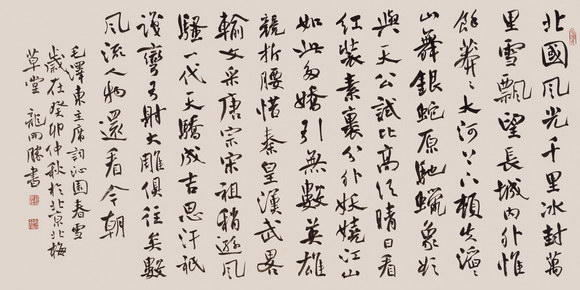 北國風光千里冰封萬
里雪飄望長城內外惟
餘莽〻大河上下頓失滔〻
山舞銀蛇原馳蠟象欲
與天公試比高須晴日看
紅裝素裹分外妖嬈江山
如此多嬌引無數英雄
競折腰惜秦皇漢武畧
輸文采唐宗宋祖稍遜風
騷一代天驕成吉思汗祇
識彎弓射大雕俱往矣數
風流人物還看今朝
毛澤東主席詞沁園春雪
歲在癸卯仲秋於北京北梅
草堂 書